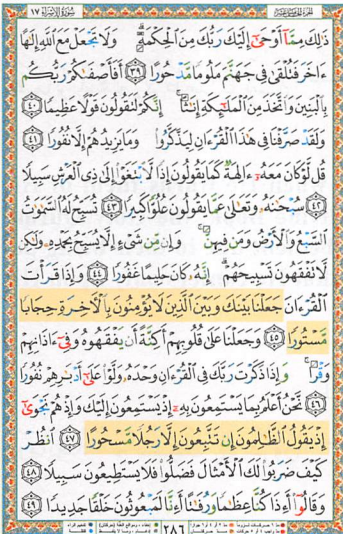 سُورَةُ الإِسْرَاءِ ١٧
ذَٰلِكَ مِمَّآ أَوْحَىٰٓ إِلَيْكَ رَبُّكَ مِنَ ٱلْحِكْمَةِۗ وَلَا تَجْعَلْ مَعَ ٱللَّهِ إِلَٰهًا
ءَاخَرَ فَتُلْقَىٰ فِى جَهَنَّمَ مَلُومًا مَّدْحُورًا ٣٩ أَفَأَصْفَىٰكُمْ رَبُّكُم
بِٱلْبَنِينَ وَٱتَّخَذَ مِنَ ٱلْمَلَٰٓئِكَةِ إِنَٰثًاۚ إِنَّكُمْ لَتَقُولُونَ قَوْلًا عَظِيمًا ٤٠
وَلَقَدْ صَرَّفْنَا فِى هَٰذَا ٱلْقُرْءَانِ لِيَذَّكَّرُوا۟ وَمَا يَزِيدُهُمْ إِلَّا نُفُورًا ٤١
قُل لَّوْ كَانَ مَعَهُۥٓ ءَالِهَةٌ كَمَا يَقُولُونَ إِذًا لَّٱبْتَغَوْا۟ إِلَىٰ ذِى ٱلْعَرْشِ سَبِيلًا
٤٢ سُبْحَٰنَهُۥ وَتَعَٰلَىٰ عَمَّا يَقُولُونَ عُلُوًّا كَبِيرًا ٤٣ تُسَبِّحُ لَهُ ٱلسَّمَٰوَٰتُ
ٱلسَّبْعُ وَٱلْأَرْضُ وَمَن فِيهِنَّۚ وَإِن مِّن شَىْءٍ إِلَّا يُسَبِّحُ بِحَمْدِهِۦ وَلَٰكِن
لَّا تَفْقَهُونَ تَسْبِيحَهُمْۗ إِنَّهُۥ كَانَ حَلِيمًا غَفُورًا ٤٤ وَإِذَا قَرَأْتَ
ٱلْقُرْءَانَ جَعَلْنَا بَيْنَكَ وَبَيْنَ ٱلَّذِينَ لَا يُؤْمِنُونَ بِٱلْءَاخِرَةِ حِجَابًا
مَّسْتُورًا ٤٥ وَجَعَلْنَا عَلَىٰ قُلُوبِهِمْ أَكِنَّةً أَن يَفْقَهُوهُ وَفِىٓ ءَاذَانِهِمْ
وَقْرًاۚ وَإِذَا ذَكَرْتَ رَبَّكَ فِى ٱلْقُرْءَانِ وَحْدَهُۥ وَلَّوْا۟ عَلَىٰٓ أَدْبَٰرِهِمْ نُفُورًا
٤٦ نَّحْنُ أَعْلَمُ بِمَا يَسْتَمِعُونَ بِهِۦٓ إِذْ يَسْتَمِعُونَ إِلَيْكَ وَإِذْ هُمْ نَجْوَىٰٓ
إِذْ يَقُولُ ٱلظَّٰلِمُونَ إِن تَتَّبِعُونَ إِلَّا رَجُلًا مَّسْحُورًا ٤٧ ٱنظُرْ
كَيْفَ ضَرَبُوا۟ لَكَ ٱلْأَمْثَالَ فَضَلُّوا۟ فَلَا يَسْتَطِيعُونَ سَبِيلًا
٤٨
وَقَالُوٓا۟ أَءِذَا كُنَّا عِظَٰمًا وَرُفَٰتًا أَءِنَّا لَمَبْعُوثُونَ خَلْقًا جَدِيدًا ٤٩
٢٨٦